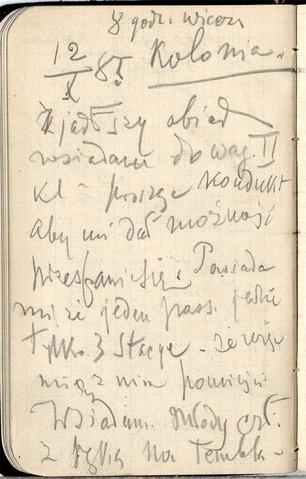 8 godz. wiecz.
12/X 87 Kolonia.
Zjadłszy obiad
wsiadam do wag. II
kl – proszę kondukt
aby mi dał możność
przespania się. Powiada
mi że jeden pass. jedzie
tylko 3 stacye – że więc
mogę z nim pomieścić
Wsiadam. Młody czł.
z tyłu na